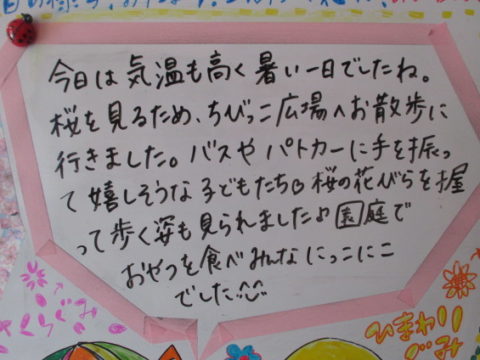 今日は気温も高く暑い一日でしたね。
桜を見るため、ちびっこ広場へお散歩に
行きました。バスやパトカーに手を振っ
て嬉しそうな子どもたち 桜の花びらを握
って歩く姿も見られました♪園庭で
おやつを食べみんなにっこにこ
でした
さくらぐみ
ひまわり
ぐみ